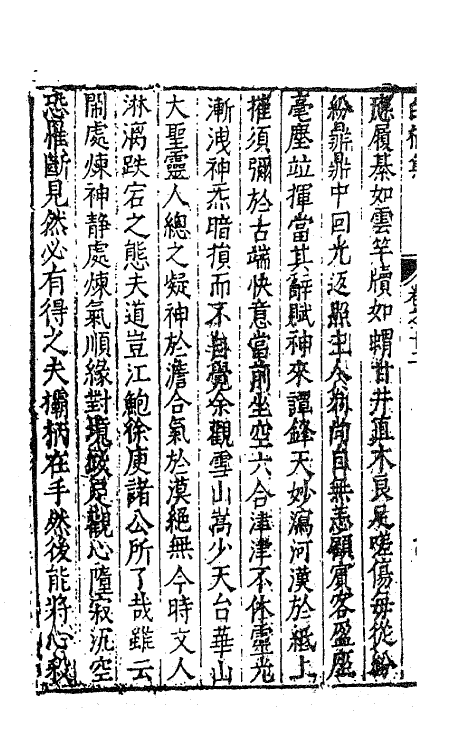 白榆集 卷之十二
履綦如雲竿牘如蝟甘井直木良足嗟傷每從紛
紛鼎鼎中回光返照主人翁尚自無恙顧賓客盈座
毫麈竝揮當其辭賦神來譚鋒天妙瀉河漢於紙上
摧須彌於舌端快意當前坐空六合津津不休靈光
漸洩神炁暗損而不自覺余觀雪山嵩少天台華山
大聖靈人總之凝神於澹合氣於漠絕無今時文人
淋漓跌宕之態夫道豈江鮑徐庾諸公所了哉雖云
鬧處煉神靜處煉氣順緣對境觀心墮寂沉空
恐惟斷見然必有得之夫欛柄在手然後能將心殺